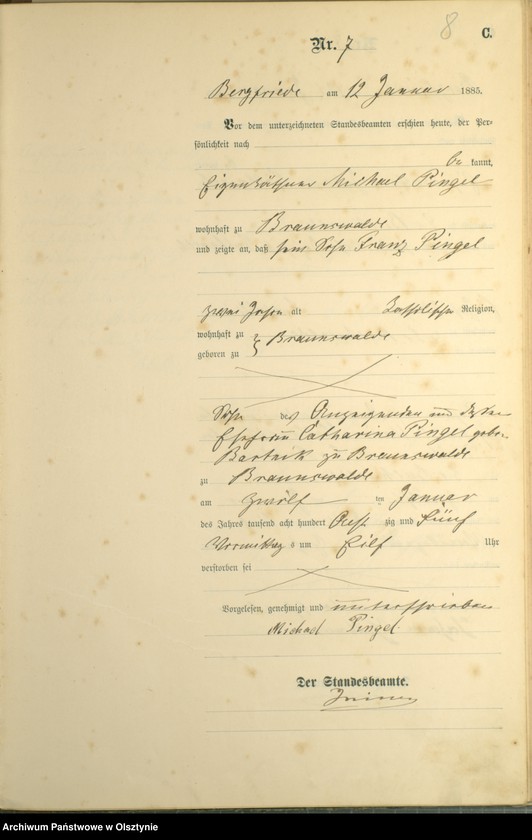 8
C.
Nr. 7
Bergfriede am 12 Januar 1885.
Vor dem unterzeichneten Standesbeamten erschien heute, der Per-
sönlichkeit nach
be kannt,
Eigenkäthner Michael Pingel
wohnhaft zu Braunswalde
und zeigte an, daß sein Sohn Franz Pingel
zwei Jahre alt katholischer Religion,
wohnhaft zu } Braunswalde
geboren zu
Sohn des Anzeigenden und dessen
Ehefrau Catharina Pingel gebor.
Bartnik zu Braunswalde
zu Braunswalde
am zwölf ten Januar
des Jahres tausend acht hundert Acht zig und fünf
Vormittag s um Eilf Uhr
verstorben sei
Vorgelesen, genehmigt und unterschrieben
Michael Pingel
Der Standesbeamte.
Archiwum Państwowe w Olsztynie